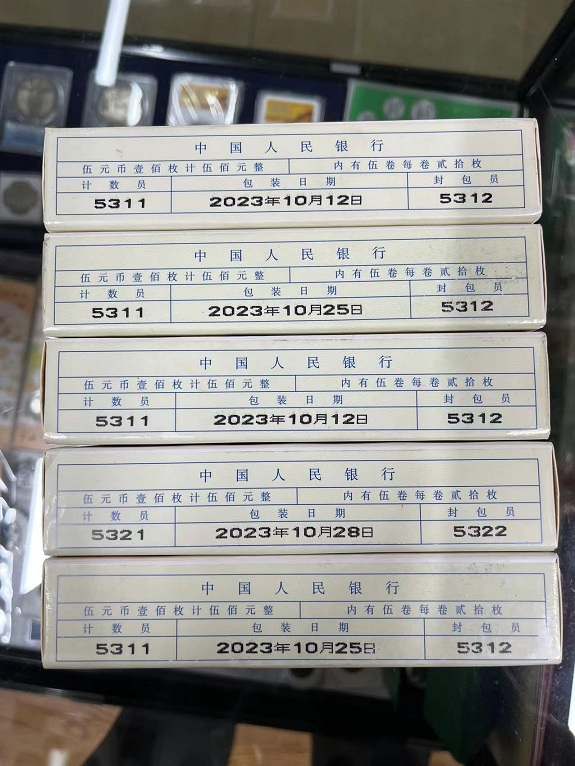 中国人民银行
伍元币壹佰枚计伍佰元整 内有伍卷每卷贰拾枚
计数员 包装日期 封包员
5311 2023年10月12日 5312
中国人民银行
伍元币壹佰枚计伍佰元整 内有伍卷每卷贰拾枚
计数员 包装日期 封包员
5311 2023年10月25日 5312
中国人民银行
伍元币壹佰枚计伍佰元整 内有伍卷每卷贰拾枚
计数员 包装日期 封包员
5311 2023年10月12日 5312
中国人民银行
伍元币壹佰枚计伍佰元整 内有伍卷每卷贰拾枚
计数员 包装日期 封包员
5321 2023年10月28日 5322
中国人民银行
伍元币壹佰枚计伍佰元整 内有伍卷每卷贰拾枚
计数员 包装日期 封包员
5311 2023年10月25日 5312